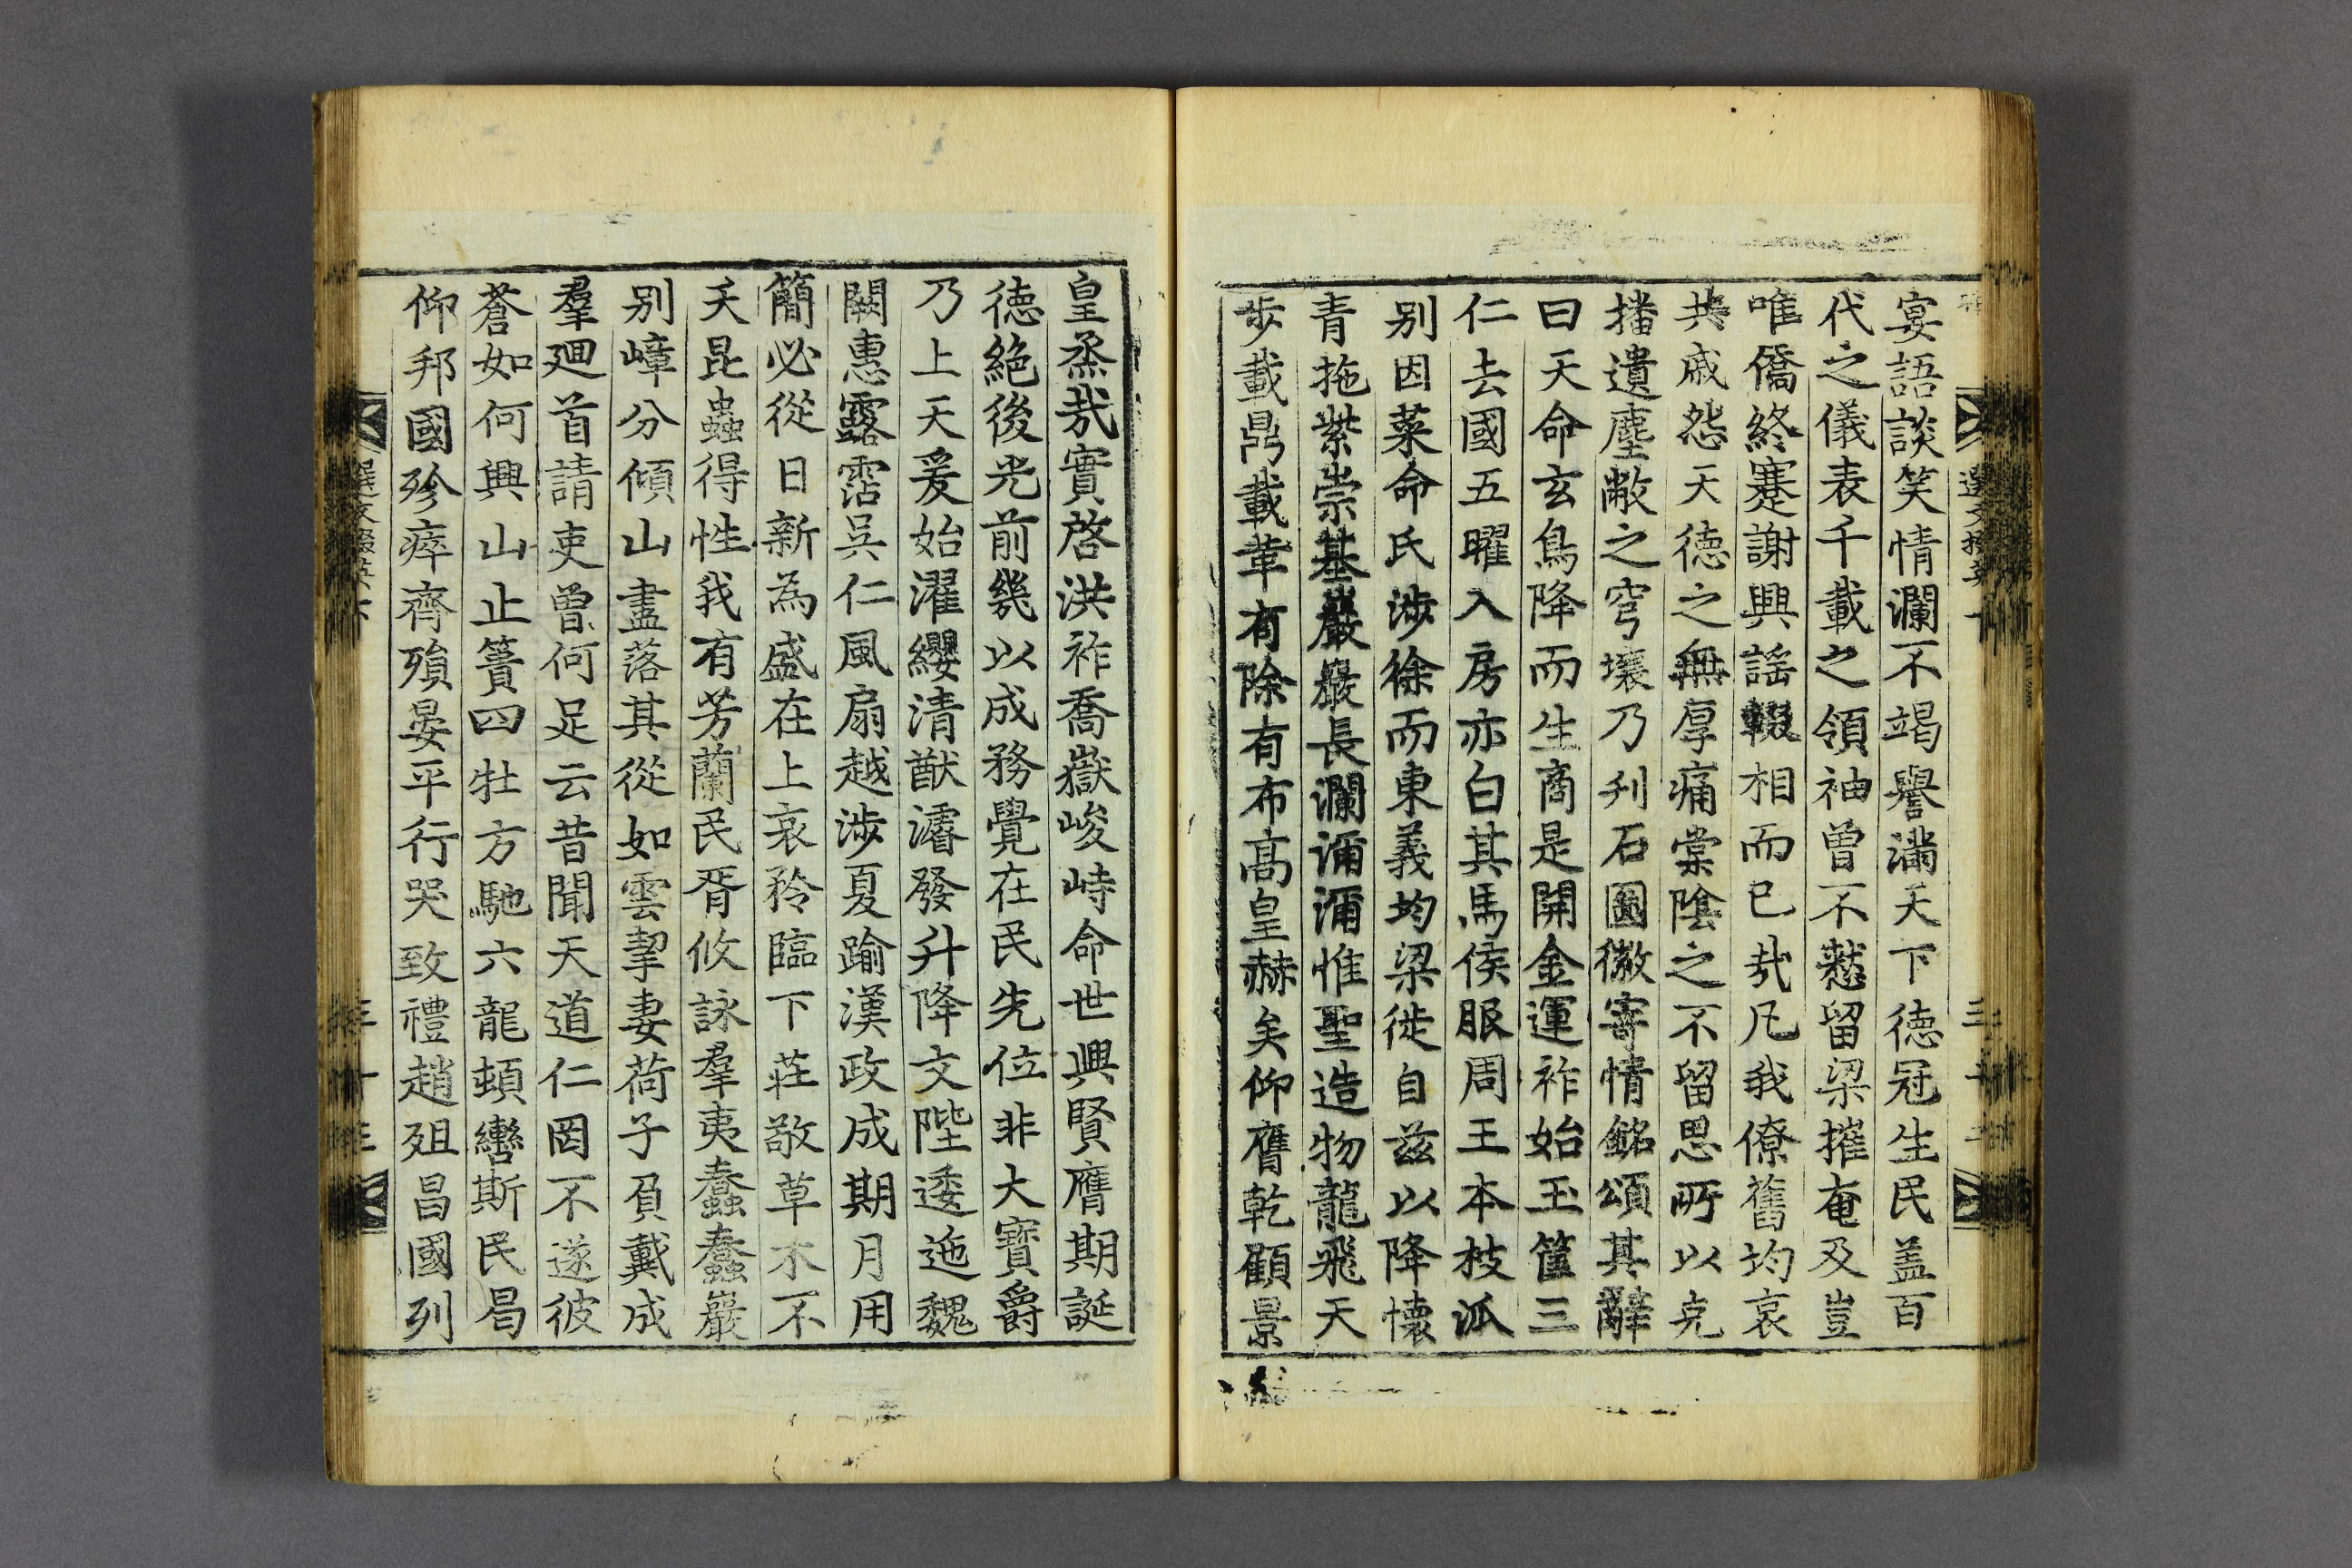 宴語談笑情瀾不竭譽滿天下德冠生民盖百
代之儀表千載之領袖曾不憖留梁摧奄及豈
唯僑終蹇謝興謠輟相而已㢤凡我僚舊均哀
共戚怨天德之無厚痛棠陰之不留思所以克
播遺塵敝之穹壤乃刋石圖徽寄情銘頌其辭
曰天命玄鳥降而生商是開金運祚始玉筐三
仁去國五曜入房亦白其馬侯服周王本枝泒
别因菜命氏涉徐而東義均梁徙自兹以降懷
青拖紫崇基巖巖長瀾瀰瀰惟聖造物龍飛天
步載鼎載革有除有布髙皇赫矣仰膺乾顧景
皇烝㢤實啓洪祚喬嶽峻峙命世興賢膺期誕
德絶後光前幾以成務覺在民先位非大寶爵
乃上天爰始濯纓清猷濬發升降文陛逶迤魏
闕惠露霑吳仁風扇越涉夏踰漢政成期月用
簡必從日新為盛在上哀矜臨下莊敬草木不
夭昆蟲得性我有芳蘭民胥攸詠羣夷蠢蠢巖
别嶂分傾山盡落其從如雲挈妻荷子負戴成
羣廻首請吏曾何足云昔聞天道仁罔不遂彼
蒼如何興山止簣四牡方馳六龍頓轡斯民曷
仰邦國殄瘁齊殞晏平行哭致禮趙殂昌國列